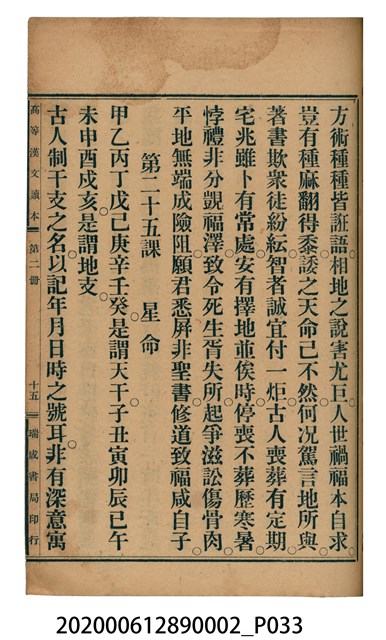 方術種種皆誑語。相地之說害尤巨。人世禍福本自求。
豈有種麻翻得黍。諉之天命已不然。何況駕言地所與。
著書欺衆徒紛紜。智者誠宜付一炬。古人喪葬有定期。
宅兆雖卜有常處。安有擇地並俟時。停喪不葬歷寒暑。
悖禮非分覬福澤。致令死生胥失所。起爭滋訟傷骨肉。
平地無端成險阻。願君悉屏非聖書。修道致福咸自子。
第二十五課　星命
甲乙丙丁戊己庚辛壬癸。是謂天干。子丑寅卯辰巳午
未申酉戌亥。是謂地支。
古人制干支之名。以記年月日時之號耳。非有深意寓
高等漢文讀本　第二冊　十五　瑞成書局印行
202000612890002_P033